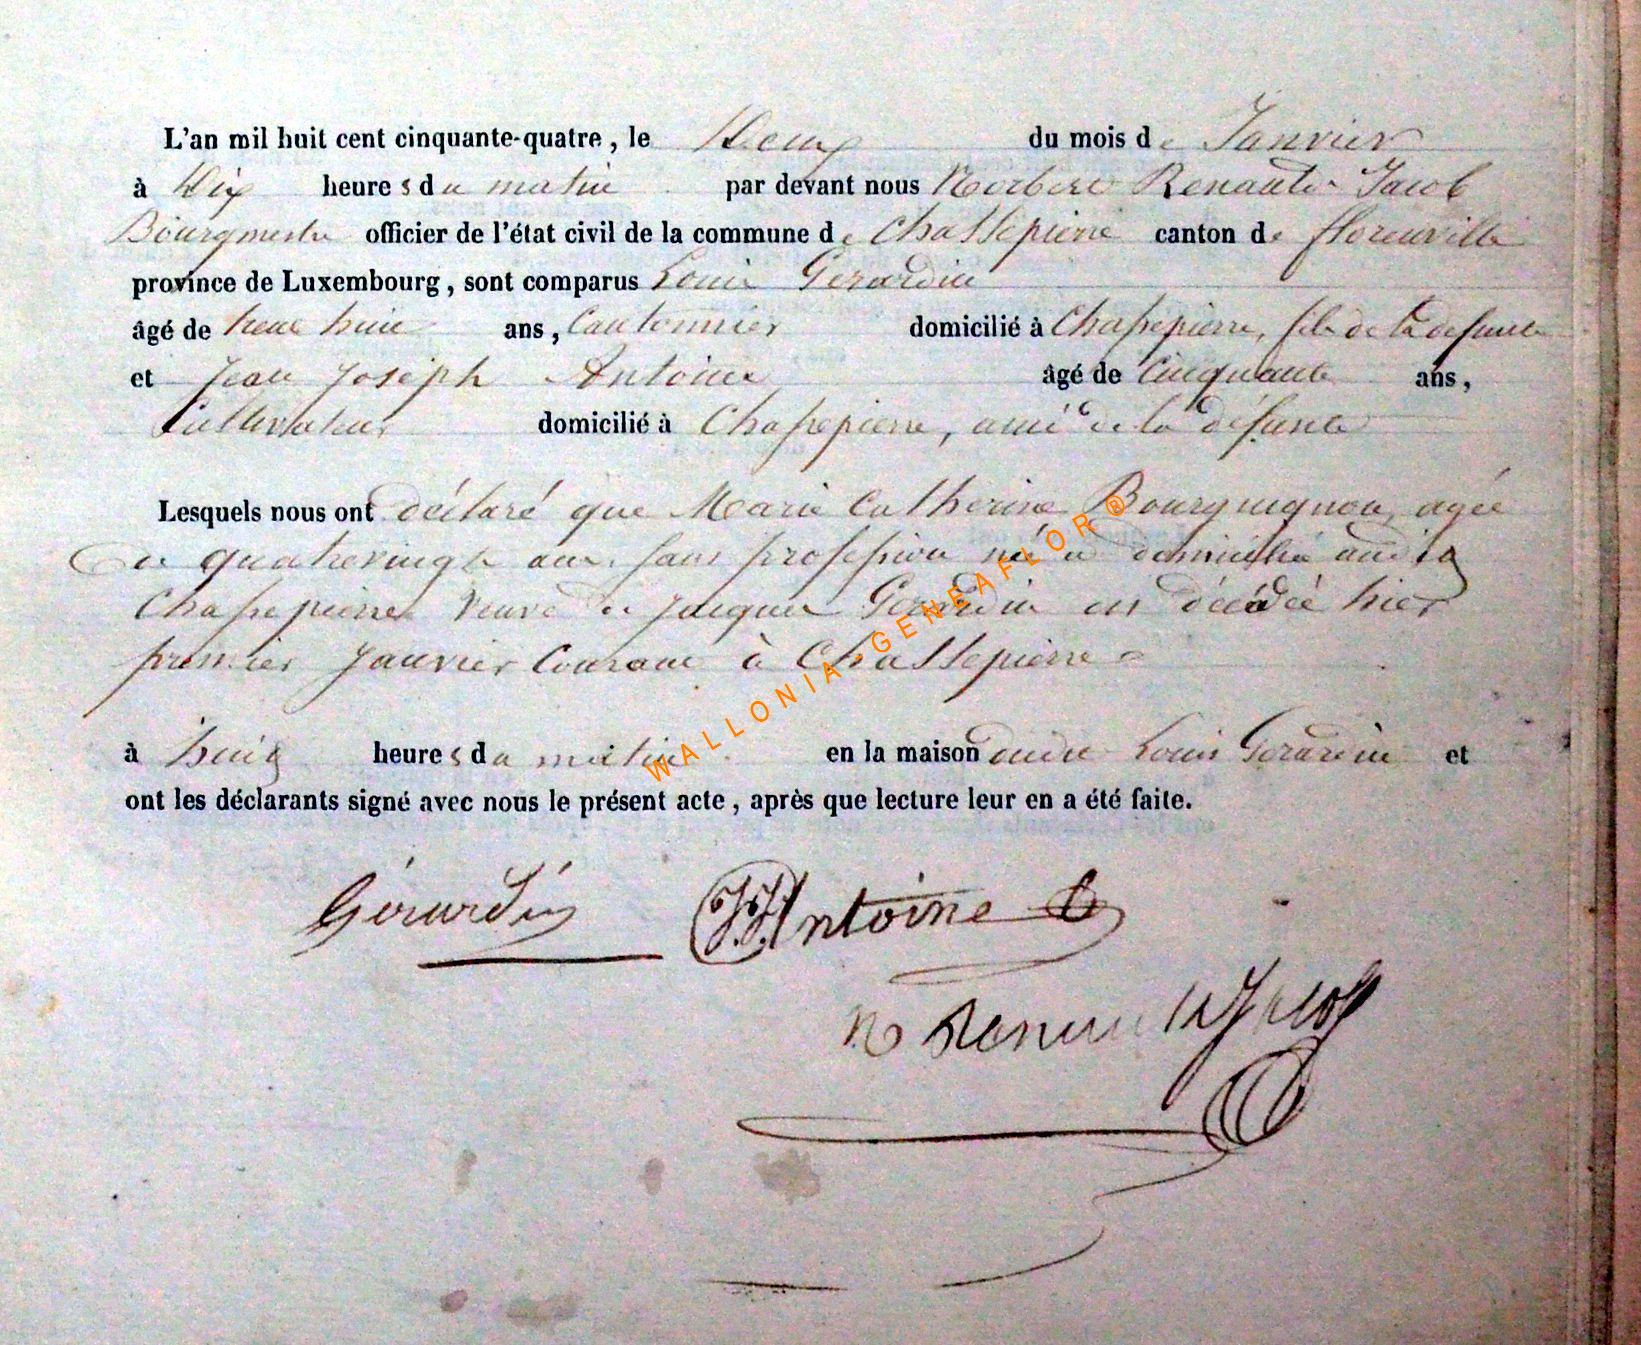 L'an mil huit cent cinquante-quatre, le Deux du mois de Janvier
à Dix heures du matin par devant nous Norbert Renauld-Jacob
Bourgmestre officier de l'état civil de la commune de Chassepierre canton de florenville
province de Luxembourg, sont comparus Louis Gerardin
âgé de trente huit ans, Cantonnier domicilié à Chassepierre, fils de la defunte
et Jean Joseph Antoine âgé de Cinquante ans,
Cultivateur domicilié à Chassepierre, ami de la défunte
Lesquels nous ont déclaré que Marie Catherine Bourguignon, agée
de quatrevingts ans, sans profession née et domiciliée audit
Chassepierre Veuve de Jacques Gerardin est décédée hier
premier Janvier Courant à Chassepierre
à huit heures du matin en la maison dudit Louis Gerardin et
ont les déclarants signé avec nous le présent acte, après que lecture leur en a été faite.
Gérardin JJAntoine
N Renauld Jacob
WALLONIA-GENEAFLOR®